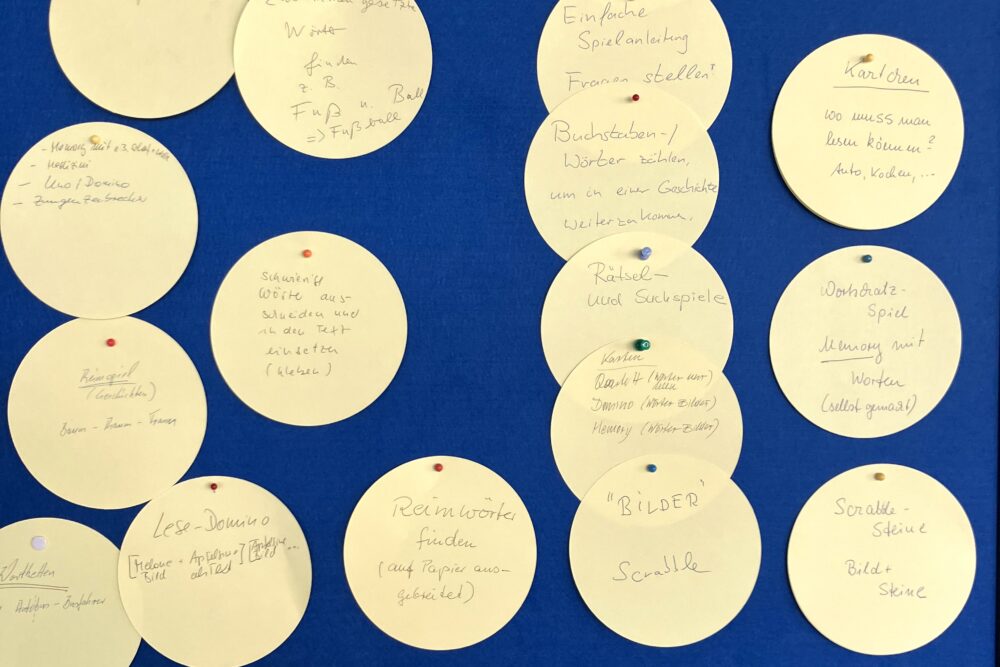 Zusammengesetzte
Wörter
finden
z. B.
Fuß u. Ball
=> Fußball
Einfache
Spielanleitung
Fragen stellen?
Buchstaben-/
Wörter zählen,
um in einer Geschichte
weiterzukommen.
Kärtchen
wo muss man
lesen können?
Auto, Kochen, ...
- Memory mit z.B.
- Medizin
- Uno / Domino
- Zungenzebrecher
schwierige
Wörter aus-
schneiden und
in den Text
einsetzen
(kleben)
Rätsel-
und Suchspiele
Wortschatz-
Spiel
Memory mit
Worten
(selbst gemacht)
Reimspiel
(Geschichten)
Baum - Traum -
Karten
Quartett (Wörter nur)
Domino (Wörter Bilder)
Memory (Wörter Bilder)
Lese-Domino
[Melone + Apfelsine] [Apfelsine ...
Bild als Text Bild
Reimwörter
finden
(auf Papier aus-
gebreitet)
"BILDER"
Scrabble
Scrabble-
Steine
Bild +
Steine
Wortketten
Autobus - Busfahrer